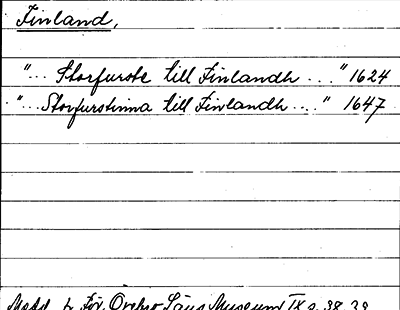 Finland,
"... Storfurste till Finlandh ..." 1624
"... Storfurstinna till Finlandh ...." 1647
Medd. fr. För. Örebro Läns Museum IX s. 38, 39